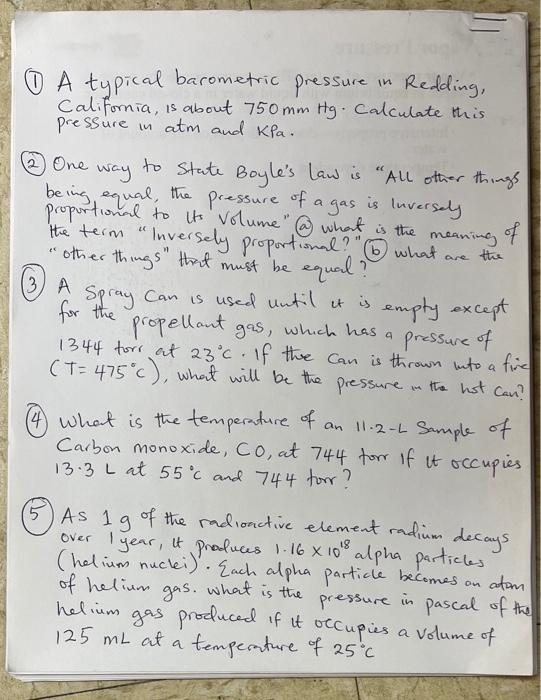 ① A typical barometric pressure in Redding,
California, is about 750 mm Hg. Calculate this
pressure in atm and KPa.
② One way to State Boyle's law is "All other things
being equal, the pressure of a gas is Inversely
proportional to its Volume" ⓐ what is the meaning of
the term "Inversely proportional?" ⓑ what are the
"other things" that must be equal?
③ A Spray Can is used until it is empty except
for the propellant gas, which has a pressure of
1344 torr at 23°C. If the can is thrown into a fire
(T = 475°C), what will be the pressure in the hot can?
④ What is the temperature of an 11.2-L Sample of
Carbon monoxide, CO, at 744 torr If it occupies
13.3 L at 55°C and 744 torr?
⑤ As 1 g of the radioactive element radium decays
over 1 year, it produces 1.16 X 10¹⁸ alpha particles
(helium nuclei). Each alpha particle becomes an atom
of helium gas. what is the pressure in pascal of the
helium gas produced if it occupies a volume of
125 mL at a temperature of 25°C